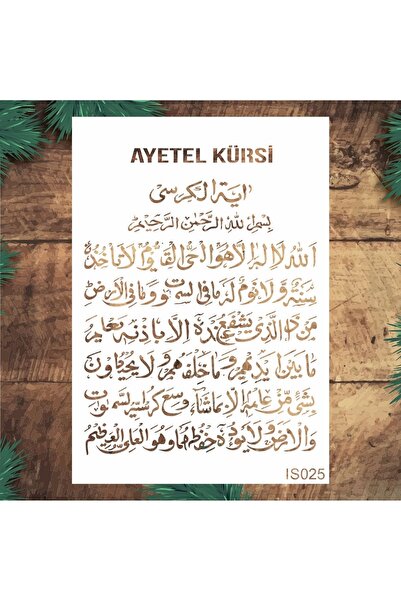 AYETEL KÜRSİ
اية الكرسى
بسم الله الرحمن الرحيم
الله لا اله الا هو الحى القيوم لا تأخذه
سنة ولا نوم له ما فى السموات وما فى الارض
من ذا الذى يشفع عنده الا باذنه يعلم
ما بين ايديهم وما خلفهم ولا يحيطون
بشىء من علمه الا بما شاء وسع كرسيه السموات
والارض ولا يؤده حفظهما وهو العلى العظيم
IS025